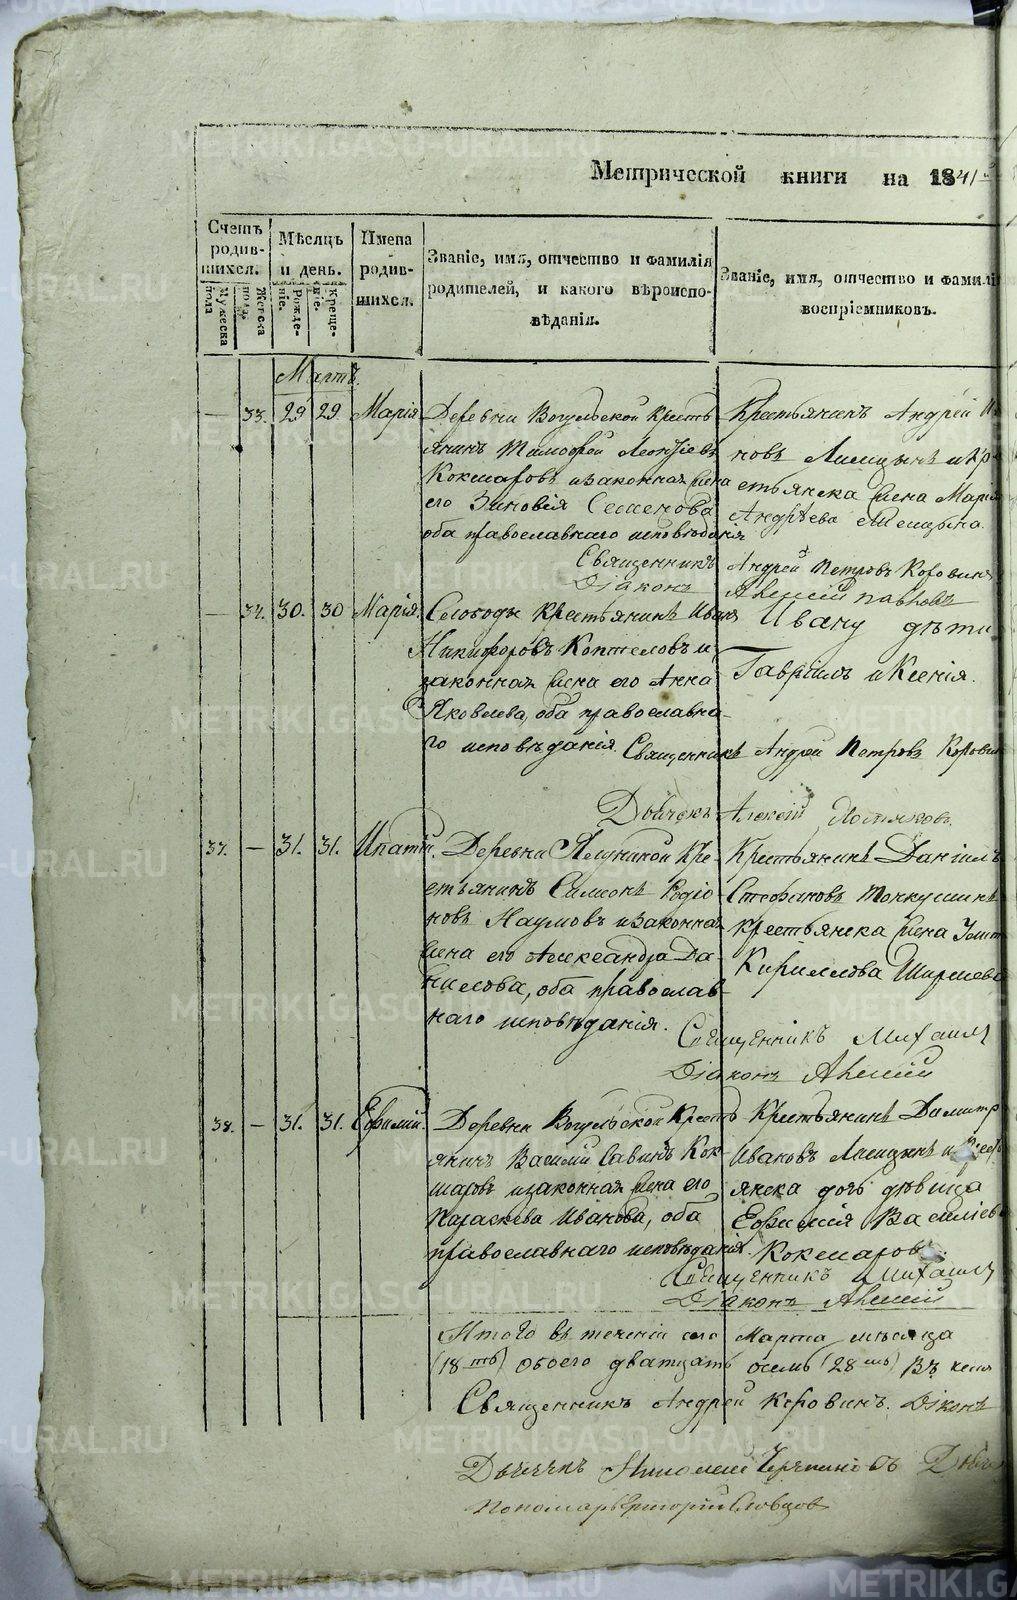 Метрической книги на 1841
Счетъ родив-шихся.
Мужеска пола
Женска пола
Мѣсяцъ и день.
Рожде-ніе.
Креще-ніе.
Имена родив-шихся.
Званіе, имя, отчество и фамилія
родителей, и какого вѣроиспо-
вѣданія.
Званіе, имя, отчество и фамилія
воспріемниковъ.
Мартъ.
— 33. 29 29 Марія
Деревни Вогульской кресть
янинъ Тимофей Леонтіевъ
Кокшаровъ и законная жена
его Зиновія Семенова
оба православнаго исповѣданія
Крестьянинъ Андрей
новъ и кр
стьянска жена Марія
Андрѣева
Священникъ Андрей Петровъ Коровинъ
Діаконъ Алексій Павловъ
— 34. 30. 30 Марія.
Слободы крестьянинъ Иванъ
Никифоровъ Коптеловъ и
законная жена его Анна
Яковлева, оба православна-
го исповѣданія.
Ивану дѣти
Гавріилъ и Ксенія.
Священникъ Андрей Петровъ Коровинъ
Дьячекъ Алексій
37. — 31. 31. Ипатій.
Деревни кре-
стьянинъ Симеонъ Родіо-
новъ Наумовъ и законная
жена его Александра Да-
нилова, оба православ-
наго исповѣданія.
Крестьянинъ Даніилъ
Стефановъ
крестьянска жена
Кириллова
Священникъ Михаилъ
Діаконъ Алексій
38. — 31. 31. Ефимій.
Деревни Вогульской Кресть
янинъ Василій Савинъ Кок-
шаровъ и законная жена его
Параскева Иванова, оба
православнаго исповѣданія.
Крестьянинъ Димитр
Ивановъ и
янска дочь дѣвица
Ефимія Василіев
Кокшаров
Священникъ Михаилъ
Діаконъ Алексій
Итого въ теченіи сего Марта мѣсяца
(18-ть) обоего дватцать осемь (28-мь) Въ
Священникъ Андрей Коровинъ. Діконъ
Дьячекъ
Пономарь Григорій Словцов
METRIKI.GASO-URAL.RU